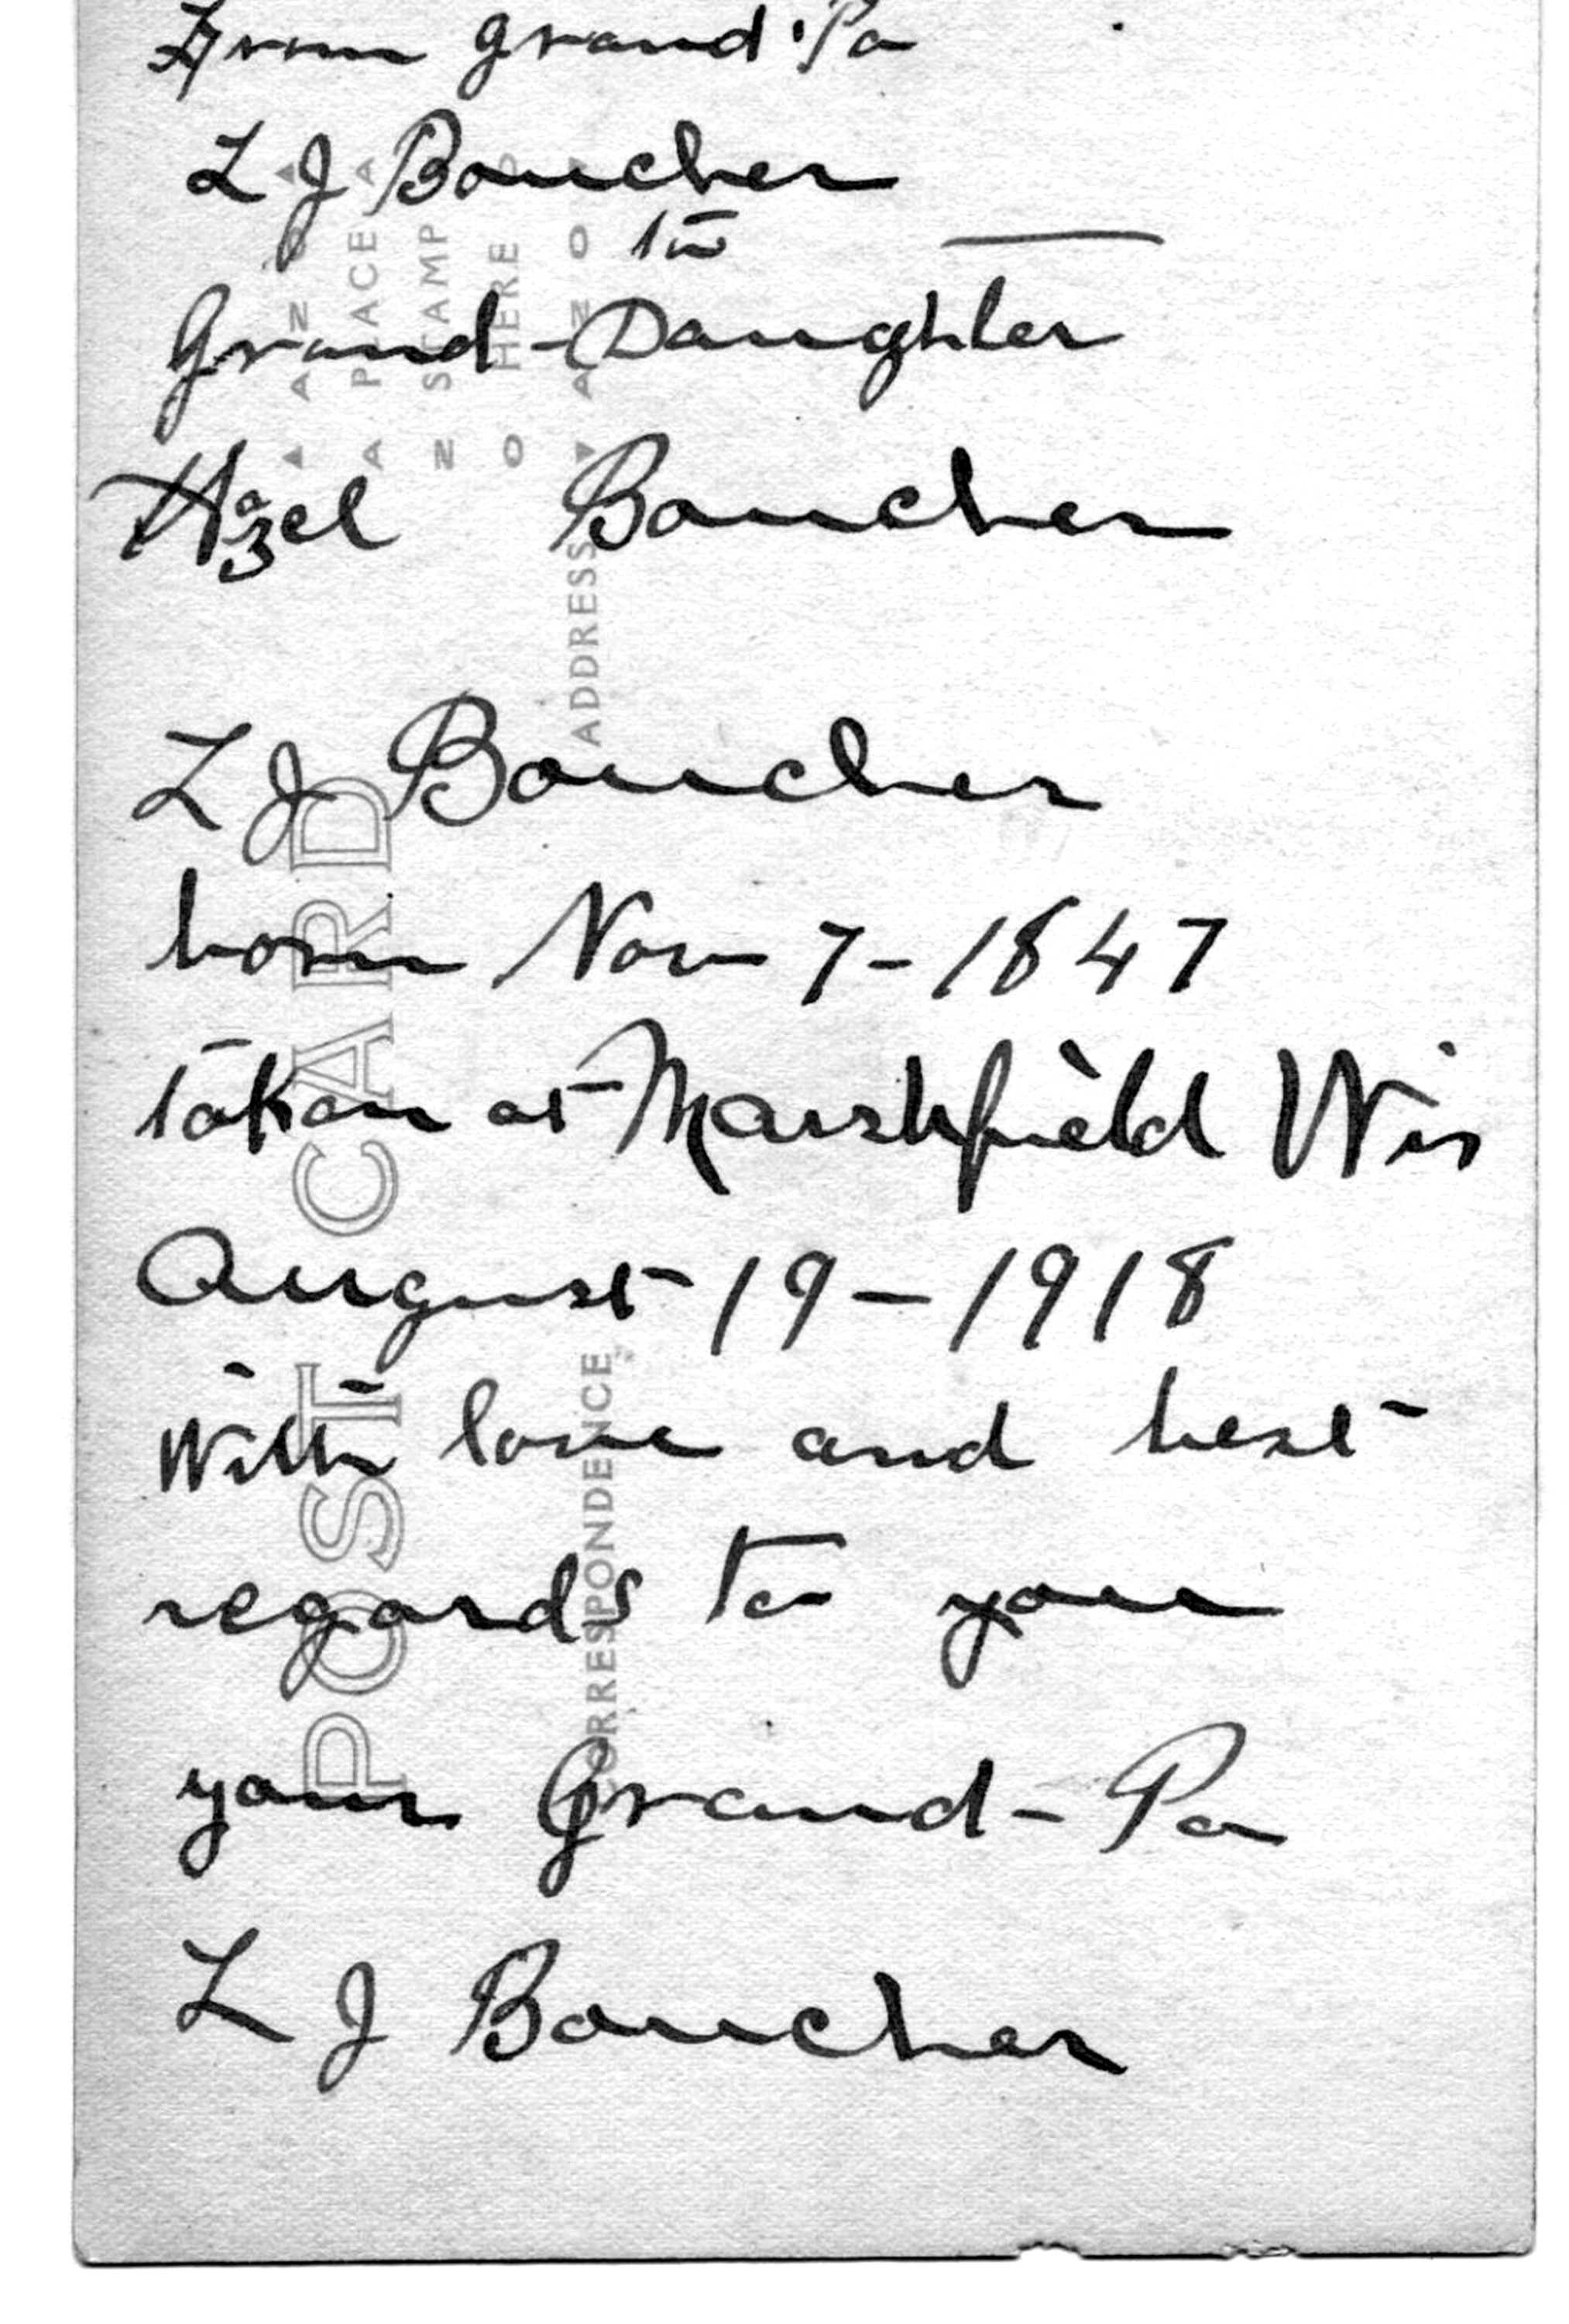 From Grand Pa
L J Boucher
to
Grand-Daughter
Hazel Boucher
L J Boucher
born Nov 7-1847
taken at Marshfield Wis
August 19-1918
With love and best
regards to you
your Grand-Pa
L J Boucher
POST CARD
CORRESPONDENCE
ADDRESS
PLACE
STAMP
HERE